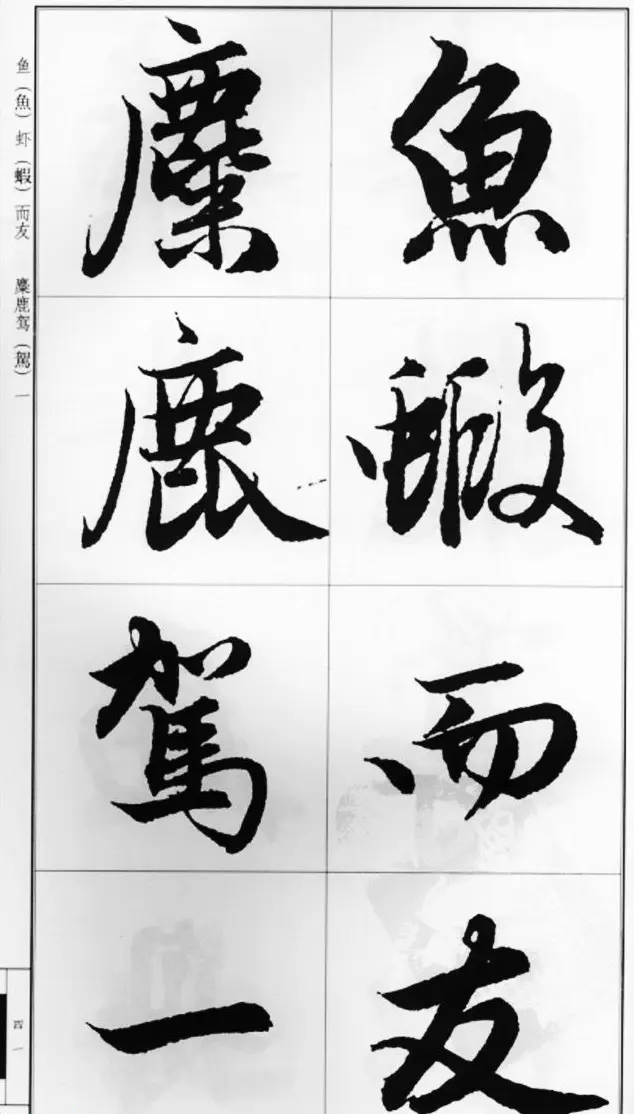 魚蝦而友
麋鹿駕一
鱼（魚）虾（蝦）而友　麋鹿驾（駕）一
四一